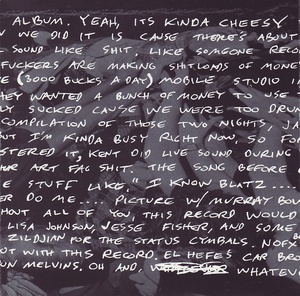 ALBUM. YEAH, ITS KINDA CHEESY
WE DID IT IS CAUSE THERE'S ABOUT
SOUND LIKE SHIT, LIKE SOMEONE RECO
FUCKERS ARE MAKING SHITLOADS OF MONEY
(3000 BUCKS A DAY) MOBILE STUDIO I
HEY WANTED A BUNCH OF MONEY TO USE
LY SUCKED CAUSE WE WERE TOO DRU
COMPILATION OF THOSE TWO NIGHTS, JA
BUT I'M KINDA BUSY RIGHT NOW, SO FO
STERED IT, KENT DID LIVE SOUND DURING
ART FAG SHIT. THE SONG BEFORE
E STUFF LIKE, "I KNOW BLATZ....
ER DO ME.... PICTURE W/ MURRAY BOW
HOUT ALL OF YOU, THIS RECORD WOULD
LISA JOHNSON, JESSE FISHER, AND SOME
ZILDJIAN FOR THE STATUS CYMBALS. NOFX
OUT WITH THIS RECORD. EL HEFE'S CAR BRO
UN MELVINS. OH AND, WHATEV